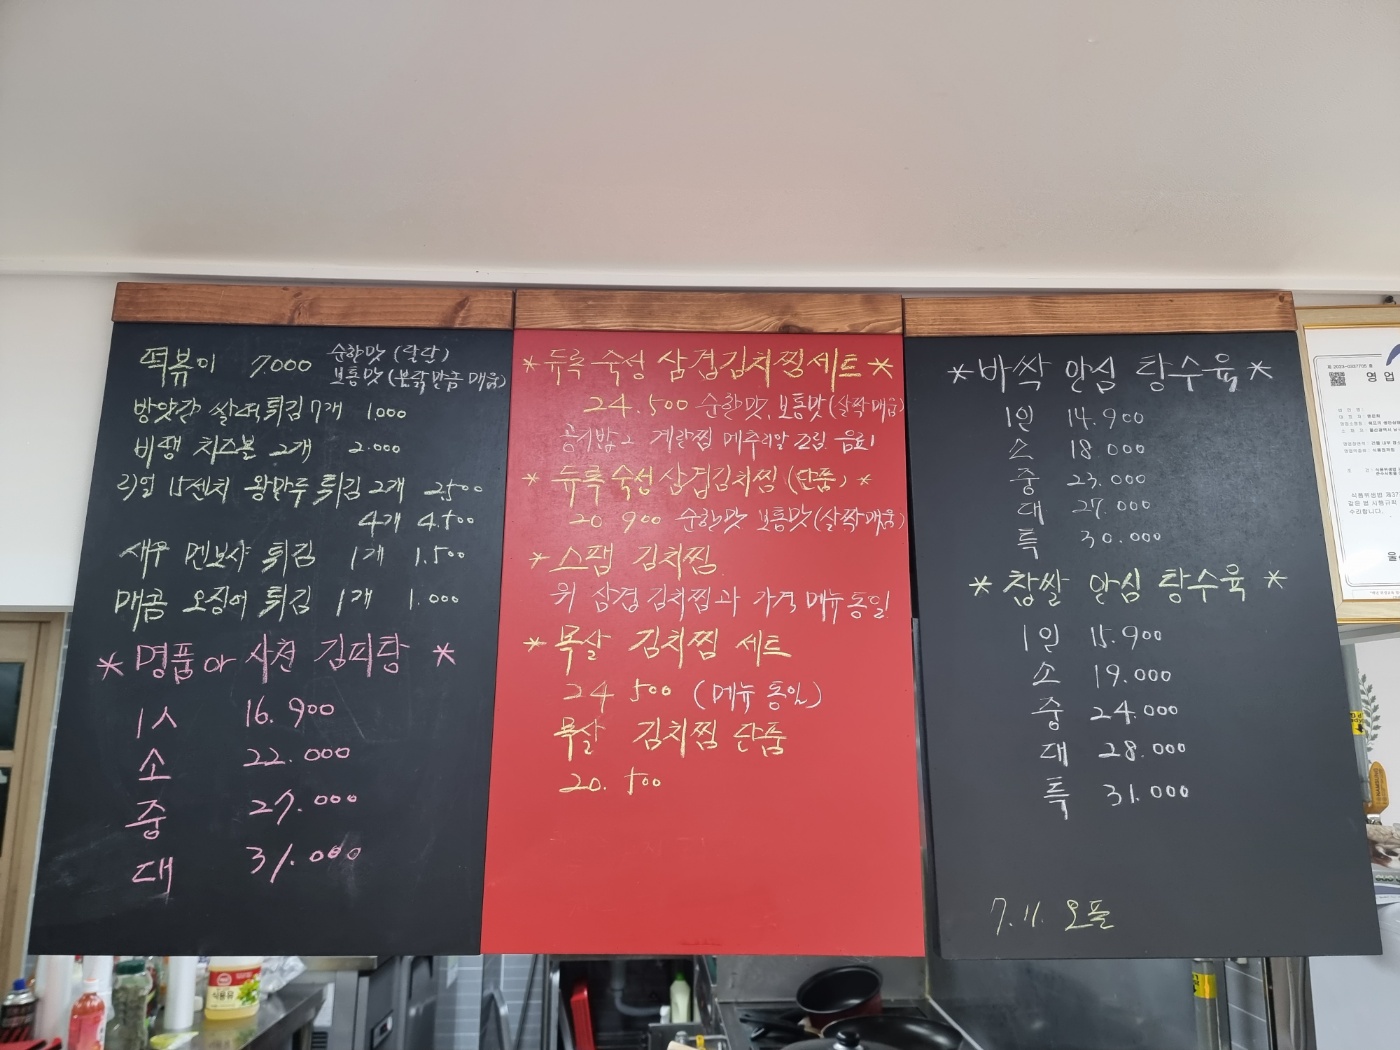 떡볶이 7000 순한맛 (락락)
보통맛 (불닭만큼 매움)
방앗간 쌀떡튀김 7개 1.000
비행 치즈볼 2개 2.000
리얼 15센치 왕만두 튀김 2개 2500
4개 4.500
새우 멘보샤 튀김 1개 1.500
매콤 오징어 튀김 1개 1.000
* 명품 or 사천 김피탕 *
1人 16.900
소 22.000
중 27.000
대 31.000
* 듀록 숙성 삼겹김치찜세트 *
24.500 순한맛, 보통맛(살짝매움)
공기밥2 계란찜 메추리알 조림 음료1
* 듀록 숙성 삼겹김치찜 (단품) *
20 900 순한맛 보통맛(살짝매움)
* 스팸 김치찜
위 삼겹김치찜과 가격 메뉴동일
* 목살 김치찜 세트
24 500 (메뉴 동일)
목살 김치찜 단품
20.500
* 바싹 안심 탕수육 *
1인 14.900
소 18.000
중 23.000
대 27.000
특 30.000
* 찹쌀 안심 탕수육 *
1인 15.900
소 19.000
중 24.000
대 28.000
특 31.000
7.11. 오픈
영업
식용유